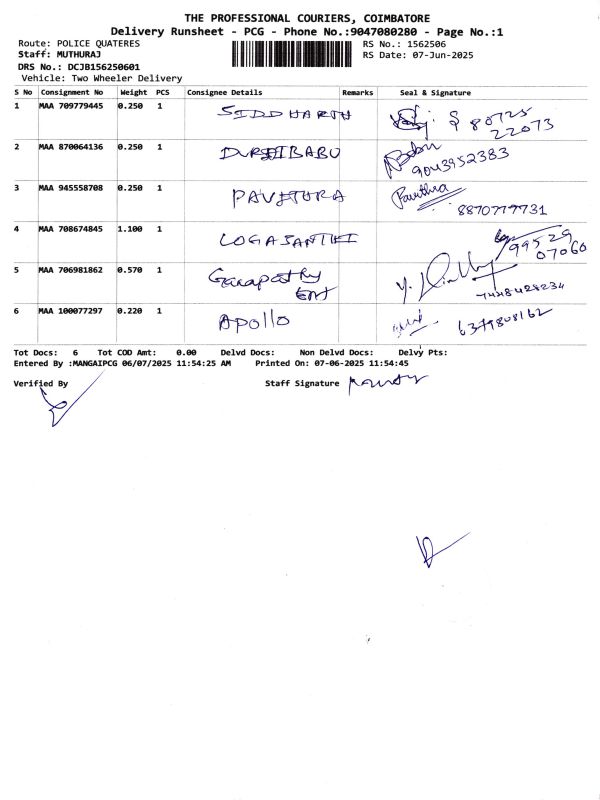 THE PROFESSIONAL COURIERS, COIMBATORE
Delivery Runsheet - PCG - Phone No.:9047080280 - Page No.:1
Route: POLICE QUATERES RS No.: 1562506
Staff: MUTHURAJ RS Date: 07-Jun-2025
DRS No.: DCJB156250601
Vehicle: Two Wheeler Delivery
S No Consignment No Weight PCS Consignee Details Remarks Seal & Signature
1 MAA 709779445 0.250 1 SIDDHARTH 80725
22073
2 MAA 870064136 0.250 1 Babu
9043952383
3 MAA 945558708 0.250 1 PAVITHRA Pavithra
8870779731
4 MAA 708674845 1.100 1 LOGASANTHI 99529
07060
5 MAA 706981862 0.570 1 Ganapathy
ENT 7448428234
6 MAA 100077297 0.220 1 APOllO 6379808162
Tot Docs: 6 Tot COD Amt: 0.00 Delvd Docs: Non Delvd Docs: Delvy Pts:
Entered By :MANGAIPCG 06/07/2025 11:54:25 AM Printed On: 07-06-2025 11:54:45
Verified By Staff Signature